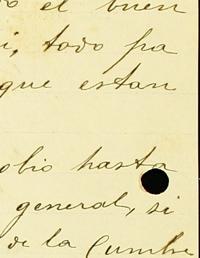 el buen
i, todo pa
que estan
olio hasta
general, si
de la Cumbre